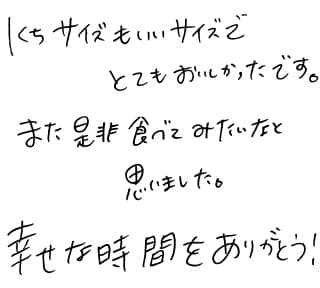 1くちサイズもいいサイズで
とてもおいしかったです。
また是非食べてみたいなと
思いました。
幸せな時間をありがとう!